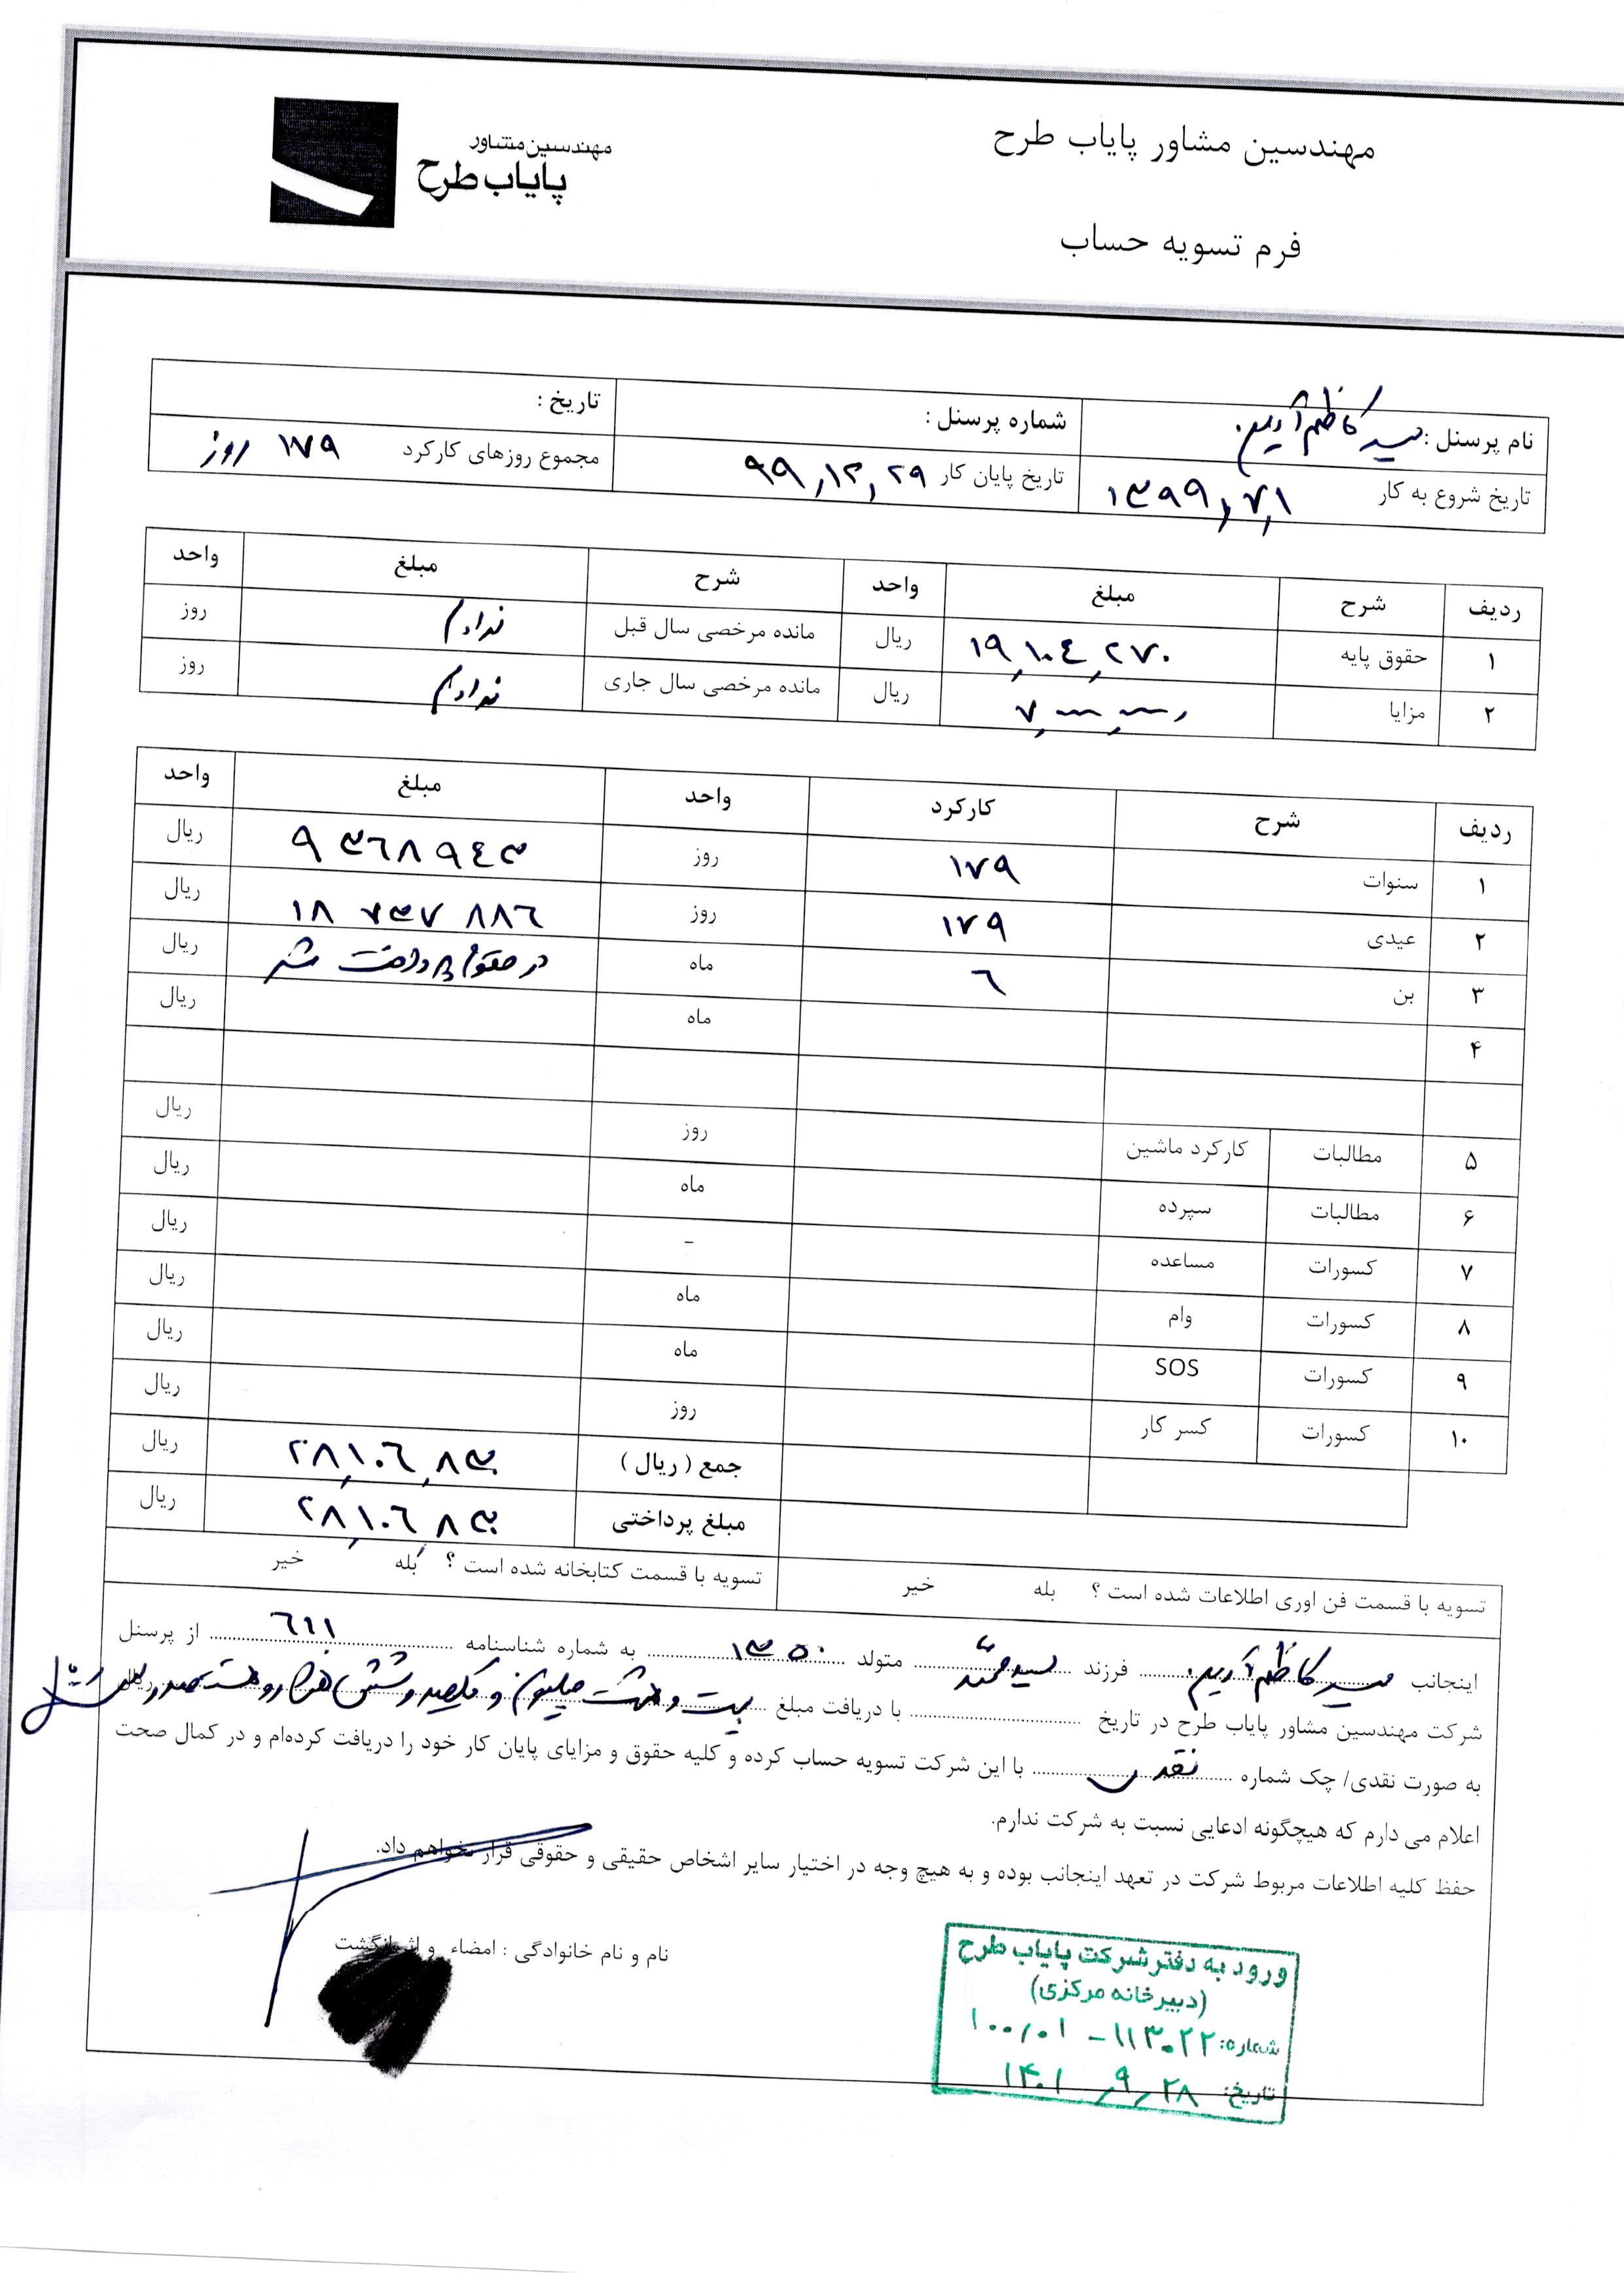 مهندسین مشاور پایاب طرح
مهندسین مشاور
پایاب طرح
فرم تسویه حساب
نام پرسنل : سید کاظم شماره پرسنل : تاریخ :
تاریخ شروع به کار ۱۳۹۹٫۷٫۱ تاریخ پایان کار ۹۹٫۱۲٫۲۹ مجموع روزهای کارکرد ۱۷۹ روز
ردیف شرح مبلغ واحد شرح مبلغ واحد
۱ حقوق پایه ۱۹٫۱۰۴٫۲۷۰ ریال مانده مرخصی سال قبل ندارم روز
۲ مزایا ریال مانده مرخصی سال جاری ندارم روز
ردیف شرح کارکرد واحد مبلغ واحد
۱ سنوات ۱۷۹ روز ۹ ۳۶۸ ۹۴۳ ریال
۲ عیدی ۱۷۹ روز ۱۸ ۷۳۷ ۸۸۶ ریال
۳ بن ۶ ماه در حقوق پرداخت شد ریال
۴ ماه ریال
۵ مطالبات کارکرد ماشین روز ریال
۶ مطالبات سپرده ماه ریال
۷ کسورات مساعده - ریال
۸ کسورات وام ماه ریال
۹ کسورات SOS ماه ریال
۱۰ کسورات کسر کار روز ریال
جمع ( ریال ) ۲۸٫۱۰۶٫۸۳۰ ریال
مبلغ پرداختی ۲۸٫۱۰۶٫۸۳۰ ریال
تسویه با قسمت فن اوری اطلاعات شده است ؟ بله خیر تسویه با قسمت کتابخانه شده است ؟ بله خیر
اینجانب سید کاظم فرزند متولد ۱۳۵۰ به شماره شناسنامه ۶۱۱ از پرسنل
شرکت مهندسین مشاور پایاب طرح در تاریخ با دریافت مبلغ بیست و هشت میلیون و یکصد و شش هزار و هشتصد و سی ریال
به صورت نقدی/ چک شماره نقدی با این شرکت تسویه حساب کرده و کلیه حقوق و مزایای پایان کار خود را دریافت کرده‌ام و در کمال صحت
اعلام می دارم که هیچگونه ادعایی نسبت به شرکت ندارم.
حفظ کلیه اطلاعات مربوط شرکت در تعهد اینجانب بوده و به هیچ وجه در اختیار سایر اشخاص حقیقی و حقوقی قرار نخواهم داد.
نام و نام خانوادگی : امضاء و اثر انگشت
ورود به دفتر شرکت پایاب طرح
(دبیرخانه مرکزی)
شماره: ۱۰۰٫۰۱ - ۱۱۳۰۲۲
تاریخ: ۱۴۰۱٫۹٫۲۸